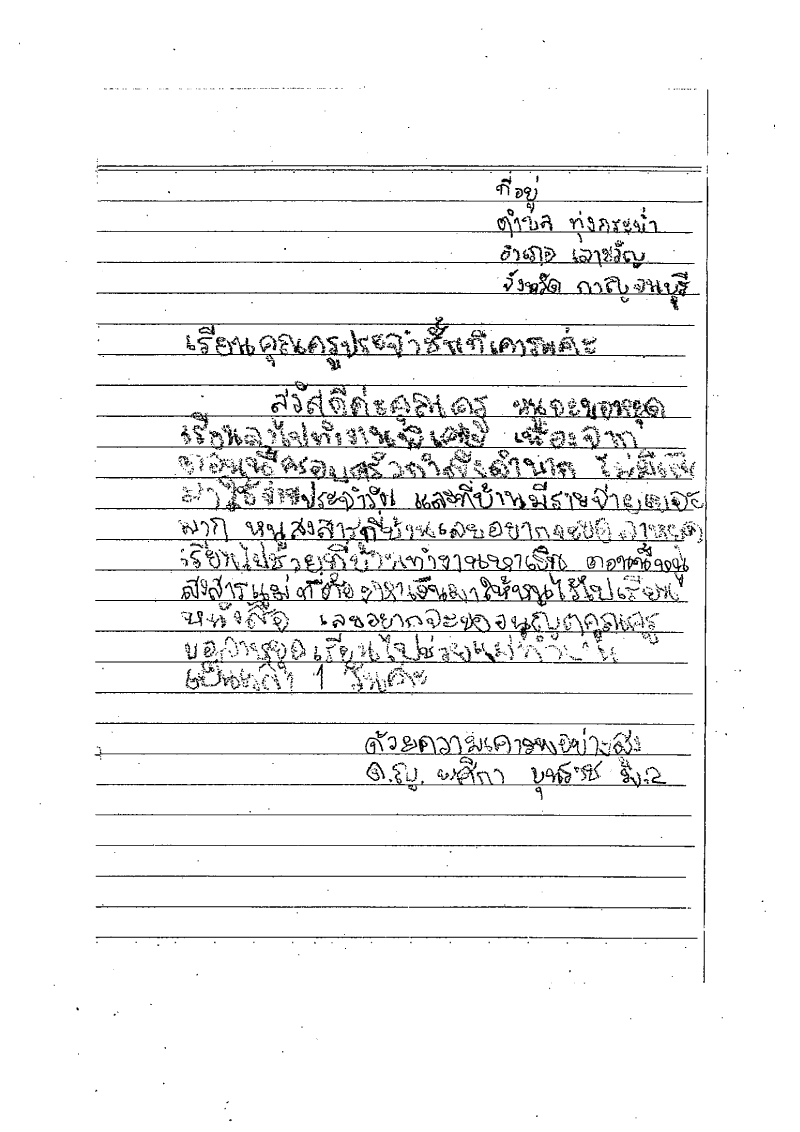 ที่อยู่
ตำบล ทุ่งกระบ่ำ
อำเภอ เลาขวัญ
จังหวัด กาญจนบุรี
เรียนคุณครูประจำชั้นที่เคารพค่ะ
สวัสดีค่ะคุณครู หนูจะขอหยุด
เรียนลงไปทำงานพิเศษ เนื่องจาก
ตอนนี้ครอบครัวกำลังลำบาก ไม่มีเงิน
มาใช้จ่ายประจำวัน และที่บ้านมีรายจ่ายเยอะ
มาก หนูสงสารที่บ้านเลยอยากจะขอลาหยุด
เรียนไปช่วยที่บ้านทำงานหาเงิน ตอนนี้หนู
สงสารแม่ที่ต้องหาเงินมาให้หนูไว้ไปเรียน
หนังสือ เลยอยากจะขออนุญาตคุณครู
ขอลาหยุดเรียนไปช่วยแม่ทำงาน
เป็นเวลา 1 วันค่ะ
ด้วยความเคารพอย่างสูง
ด.ญ. บุนราช